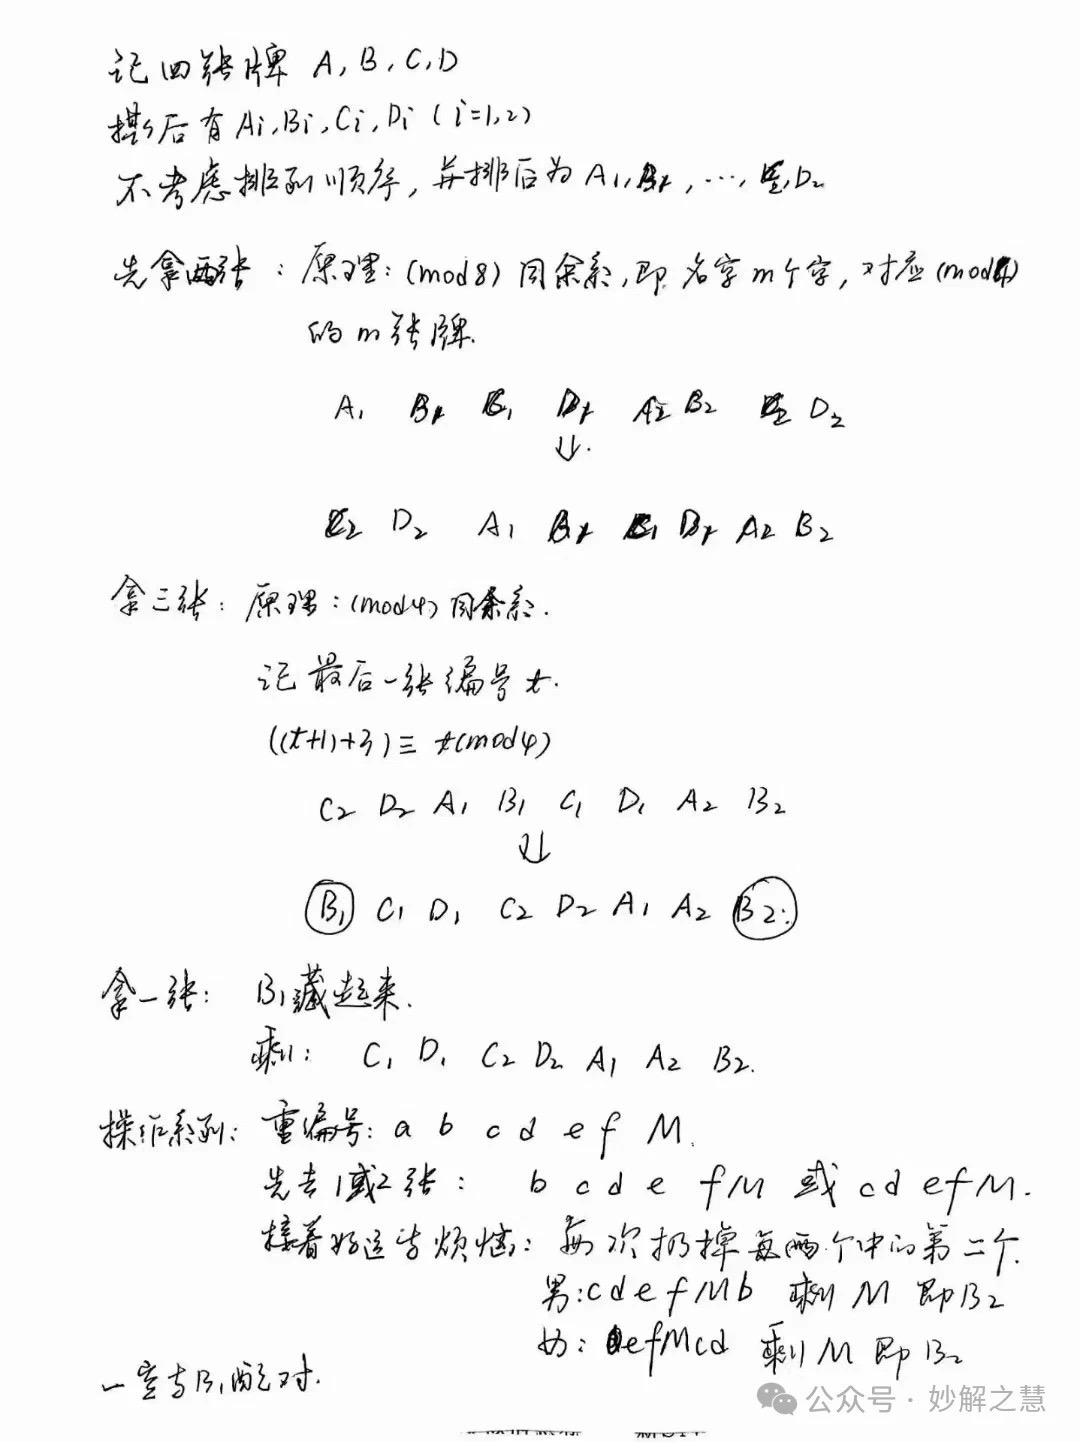 记四张牌 A, B, C, D
撕后有 Ai, Bi, Ci, Di (i=1,2)
不考虑排列顺序, 并排后为 A₁, B₁, …, C₂, D₂
先拿两张: 原理: (mod8) 同余系, 即 名字 m个字, 对应 (mod4)
的 m 张牌.
A₁ B₁ C₁ D₁ A₂ B₂ C₂ D₂
⇓.
C₂ D₂ A₁ B₁ C₁ D₁ A₂ B₂
拿三张: 原理: (mod4) 同余系.
记最后一张编号 t.
((t+1)+3) ≡ t(mod4)
C₂ D₂ A₁ B₁ C₁ D₁ A₂ B₂
⇓
B₁ C₁ D₁ C₂ D₂ A₁ A₂ B₂.
拿一张: B₁藏起来.
剩: C₁ D₁ C₂ D₂ A₁ A₂ B₂.
操作系列: 重编号: a b c d e f M.
先去1或2张: b c d e f M 或 c d e f M.
接着好运与烦恼: 每次扔掉每两个中的第二个.
男: c d e f M b 剩 M 即B₂
女: e f M c d 剩 M 即B₂
一定与B₁配对.
公众号 · 妙解之慧